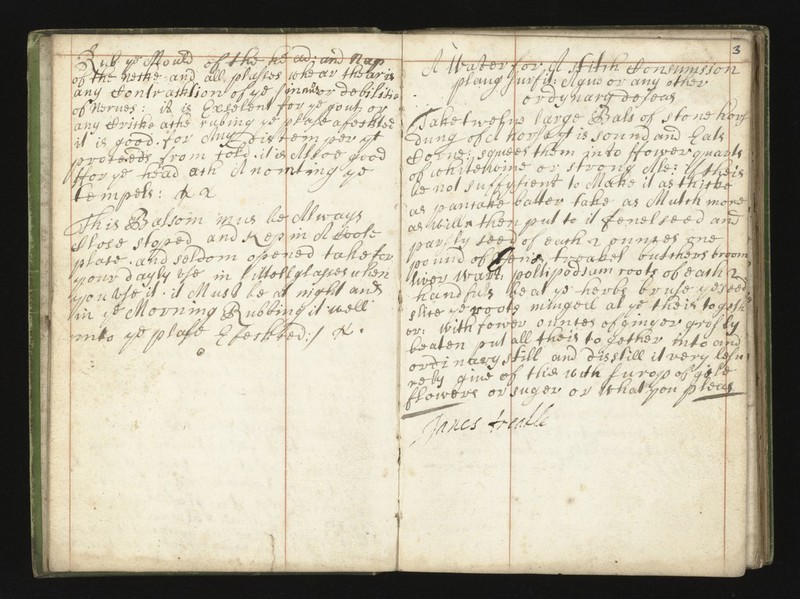 Rub ye Mould of the head and Nap
of the Necke and all plases whear thear is
any Contraktion of ye sinnus or debilitie
of Nerves: it is Exselent for ye gout or
any Cricke athe rubing ye plase afeckted
it is good for Any distemper yt
proseeds from Cold it is Alsoe good
ffor ye head ach Anointing ye
tempels:
This Balsom mus be Always
Close stoped and Kep in A Coole
plase and soldom opened take for
your dayly use in littell glases when
you use it it Must be at night and
in ye Morning Rubbing it well
into ye plase Efeckted:/
3
A Water for A Consumsion
plaug surfit: Ague or any other
ordynary deseas
Take twelve large Bals of stone hors
dung of a hors yt is sound and Eats
Corne: squees them into ffower quarts
of whitwine or strong Ale: if theis
be not suffysient to Make it as thicke
as pancake batter take as Mutch more
as will then put to it fenel seed and
parsly seed of each 2 ounses one
pound of treakel butchers broom
liver wart pollipodium roots of each 2
handfuls beat ye herbs bruse ye seeds
slise ye roots minged al ye theis togeth
er: with fower ounses of ginger grosly
beaten put all theis to gether into and
ordinary still and disstill it very lesu
rely give of this with surop of gile
flowers or suger or what you pleas
James